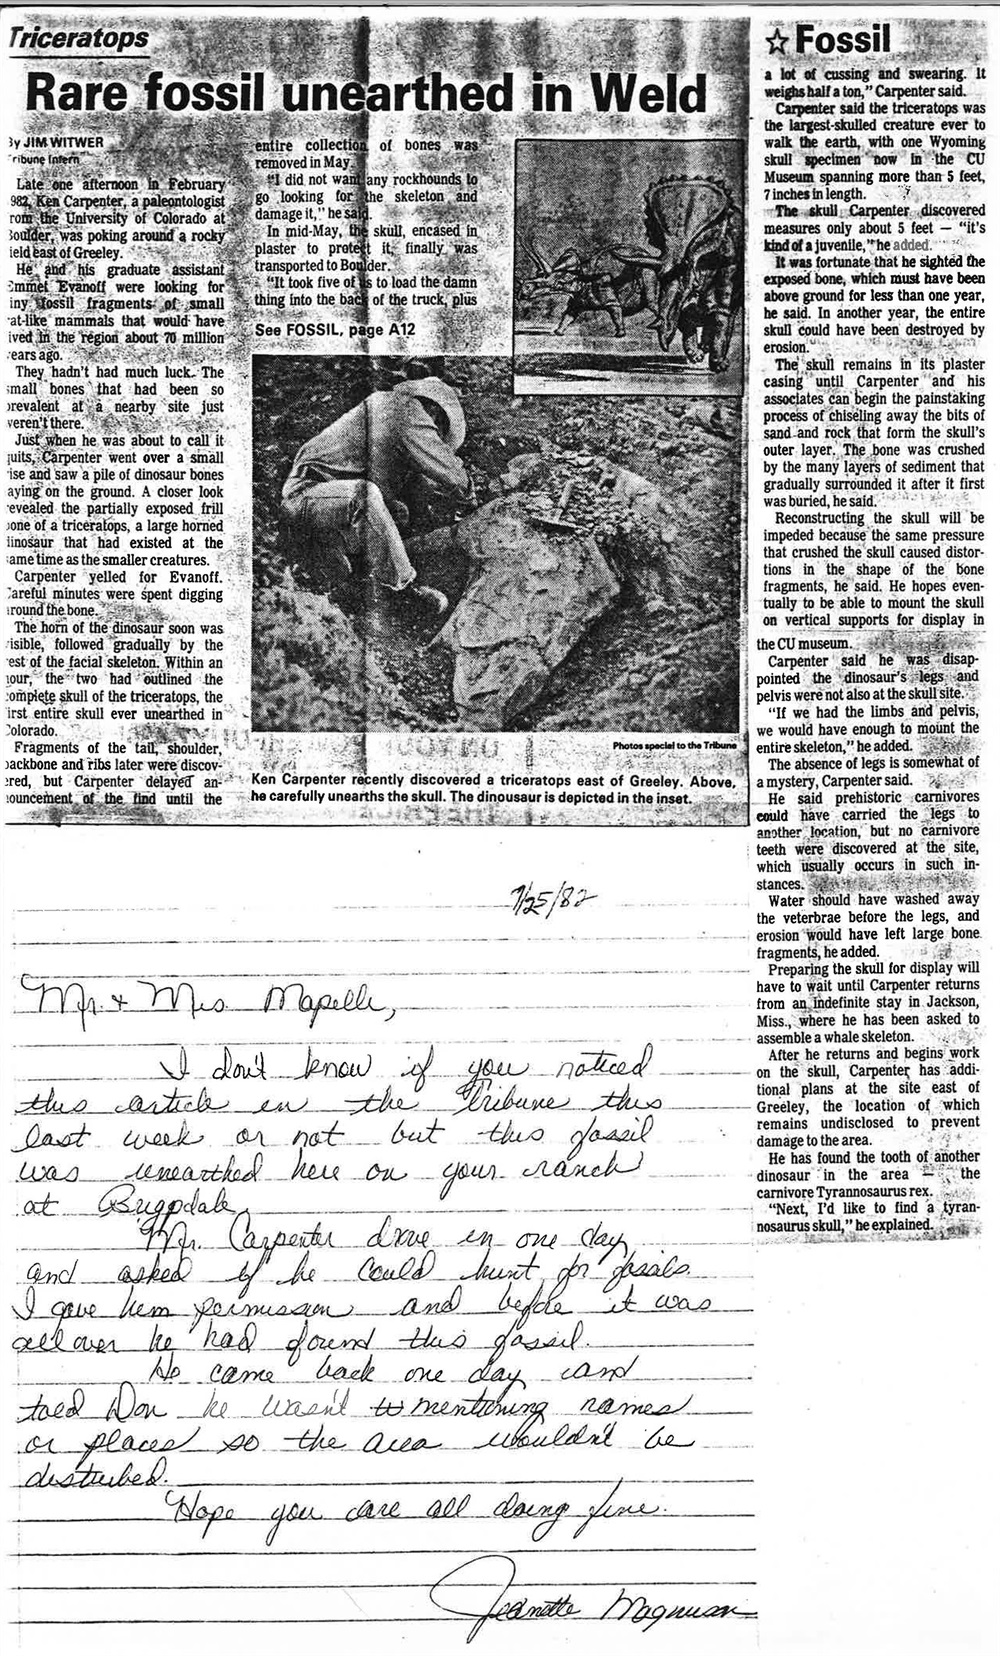 Triceratops
Rare fossil unearthed in Weld
By JIM WITWER
Tribune Intern
Late one afternoon in February
982, Ken Carpenter, a paleontologist
rom the University of Colorado at
Boulder, was poking around a rocky
ield east of Greeley.
He and his graduate assistant
Emmet Evanoff were looking for
iny fossil fragments of small
rat-like mammals that would have
ived in the region about 70 million
years ago.
They hadn't had much luck. The
small bones that had been so
prevalent at a nearby site just
weren't there.
Just when he was about to call it
quits, Carpenter went over a small
rise and saw a pile of dinosaur bones
laying on the ground. A closer look
revealed the partially exposed frill
bone of a triceratops, a large horned
dinosaur that had existed at the
same time as the smaller creatures.
Carpenter yelled for Evanoff.
Careful minutes were spent digging
around the bone.
The horn of the dinosaur soon was
visible, followed gradually by the
rest of the facial skeleton. Within an
hour, the two had outlined the
complete skull of the triceratops, the
first entire skull ever unearthed in
Colorado.
Fragments of the tail, shoulder,
backbone and ribs later were discov-
ered, but Carpenter delayed an-
nouncement of the find until the
entire collection of bones was
removed in May.
"I did not want any rockhounds to
go looking for the skeleton and
damage it," he said.
In mid-May, the skull, encased in
plaster to protect it, finally was
transported to Boulder.
"It took five of us to load the damn
thing into the back of the truck, plus
See FOSSIL, page A12
Photos special to the Tribune
Ken Carpenter recently discovered a triceratops east of Greeley. Above,
he carefully unearths the skull. The dinousaur is depicted in the inset.
☆ Fossil
a lot of cussing and swearing. It
weighs half a ton," Carpenter said.
Carpenter said the triceratops was
the largest-skulled creature ever to
walk the earth, with one Wyoming
skull specimen now in the CU
Museum spanning more than 5 feet,
7 inches in length.
The skull Carpenter discovered
measures only about 5 feet — "it's
kind of a juvenile," he added.
It was fortunate that he sighted the
exposed bone, which must have been
above ground for less than one year,
he said. In another year, the entire
skull could have been destroyed by
erosion.
The skull remains in its plaster
casing until Carpenter and his
associates can begin the painstaking
process of chiseling away the bits of
sand and rock that form the skull's
outer layer. The bone was crushed
by the many layers of sediment that
gradually surrounded it after it first
was buried, he said.
Reconstructing the skull will be
impeded because the same pressure
that crushed the skull caused distor-
tions in the shape of the bone
fragments, he said. He hopes even-
tually to be able to mount the skull
on vertical supports for display in
the CU museum.
Carpenter said he was disap-
pointed the dinosaur's legs and
pelvis were not also at the skull site.
"If we had the limbs and pelvis,
we would have enough to mount the
entire skeleton," he added.
The absence of legs is somewhat of
a mystery, Carpenter said.
He said prehistoric carnivores
could have carried the legs to
another location, but no carnivore
teeth were discovered at the site,
which usually occurs in such in-
stances.
Water should have washed away
the veterbrae before the legs, and
erosion would have left large bone
fragments, he added.
Preparing the skull for display will
have to wait until Carpenter returns
from an indefinite stay in Jackson,
Miss., where he has been asked to
assemble a whale skeleton.
After he returns and begins work
on the skull, Carpenter has addi-
tional plans at the site east of
Greeley, the location of which
remains undisclosed to prevent
damage to the area.
He has found the tooth of another
dinosaur in the area — the
carnivore Tyrannosaurus rex.
"Next, I'd like to find a tyran-
nosaurus skull," he explained.
7/25/82
Mr. + Mrs. Mapelli,
I don't know if you noticed
this article in the Tribune this
last week or not but this fossil
was unearthed here on your ranch
at Briggsdale.
Mr. Carpenter drove in one day
and asked if he could hunt for fossils.
I gave him permission and before it was
all over he had found this fossil.
He came back one day and
told Don he wasn't mentioning names
or places so the area wouldn't be
disturbed.
Hope you are all doing fine.
Jeanette Magnuson